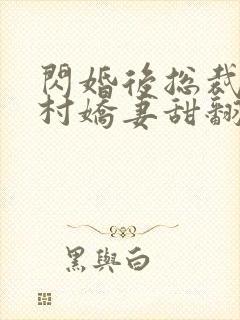 閃婚後総裁
村嬌妻甜翻
黑與白